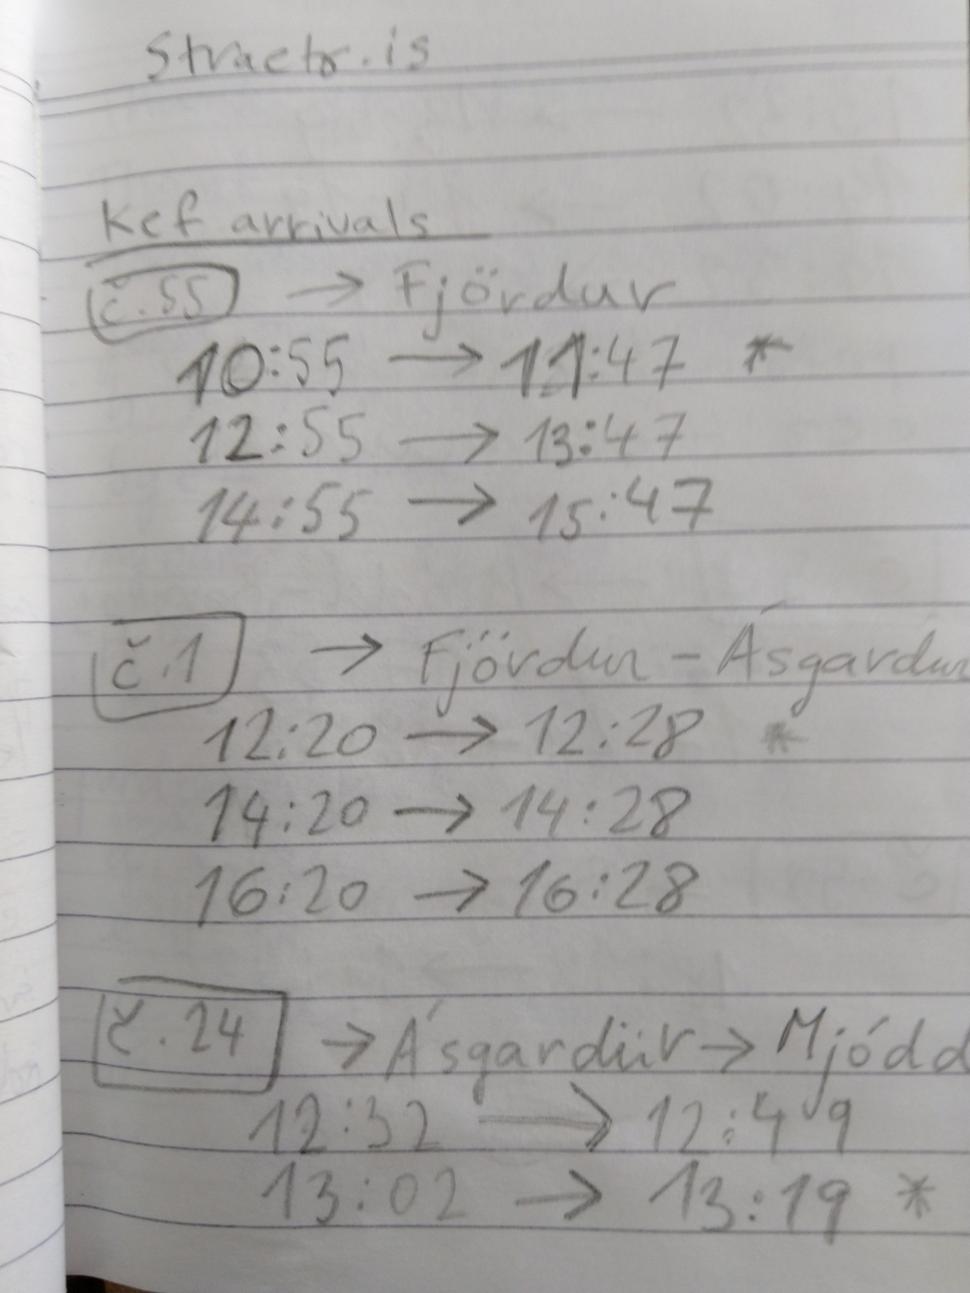 Straeto.is
Kef arrivals
č.55 → Fjördur
10:55 → 11:47 *
12:55 → 13:47
14:55 → 15:47
č.1 → Fjördur - Ásgardur
12:20 → 12:28 *
14:20 → 14:28
16:20 → 16:28
č.24 → Ásgardur → Mjódd
12:32 → 12:49
13:02 → 13:19 *